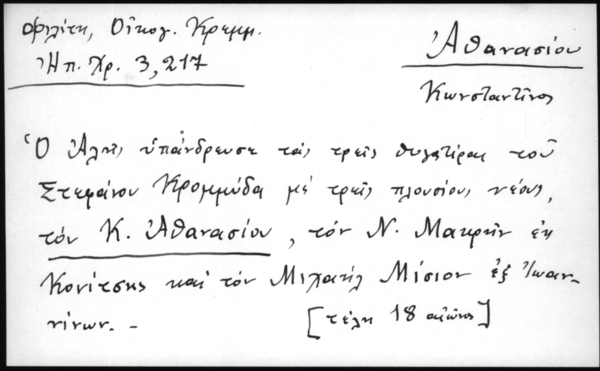 Οἰκογ. Κρεμμ.
Ἠπ. Χρ. 3,217
Ἀθανασίου
Κωνσταντῖνος
Ὁ Ἀλῆς ὑπάνδρευσε τάς τρεῖς θυγατέρας τοῦ
Στεφάνου Κρομμύδα μέ τρεῖς πλουσίους νέους,
τόν Κ. Ἀθανασίου, τόν Ν. Μακρῆν ἐκ
Κονίτσης καί τόν Μιχαήλ Μίσιον ἐξ Ἰωαν-
νίνων. -
[τέλη 18 αἰῶνος]